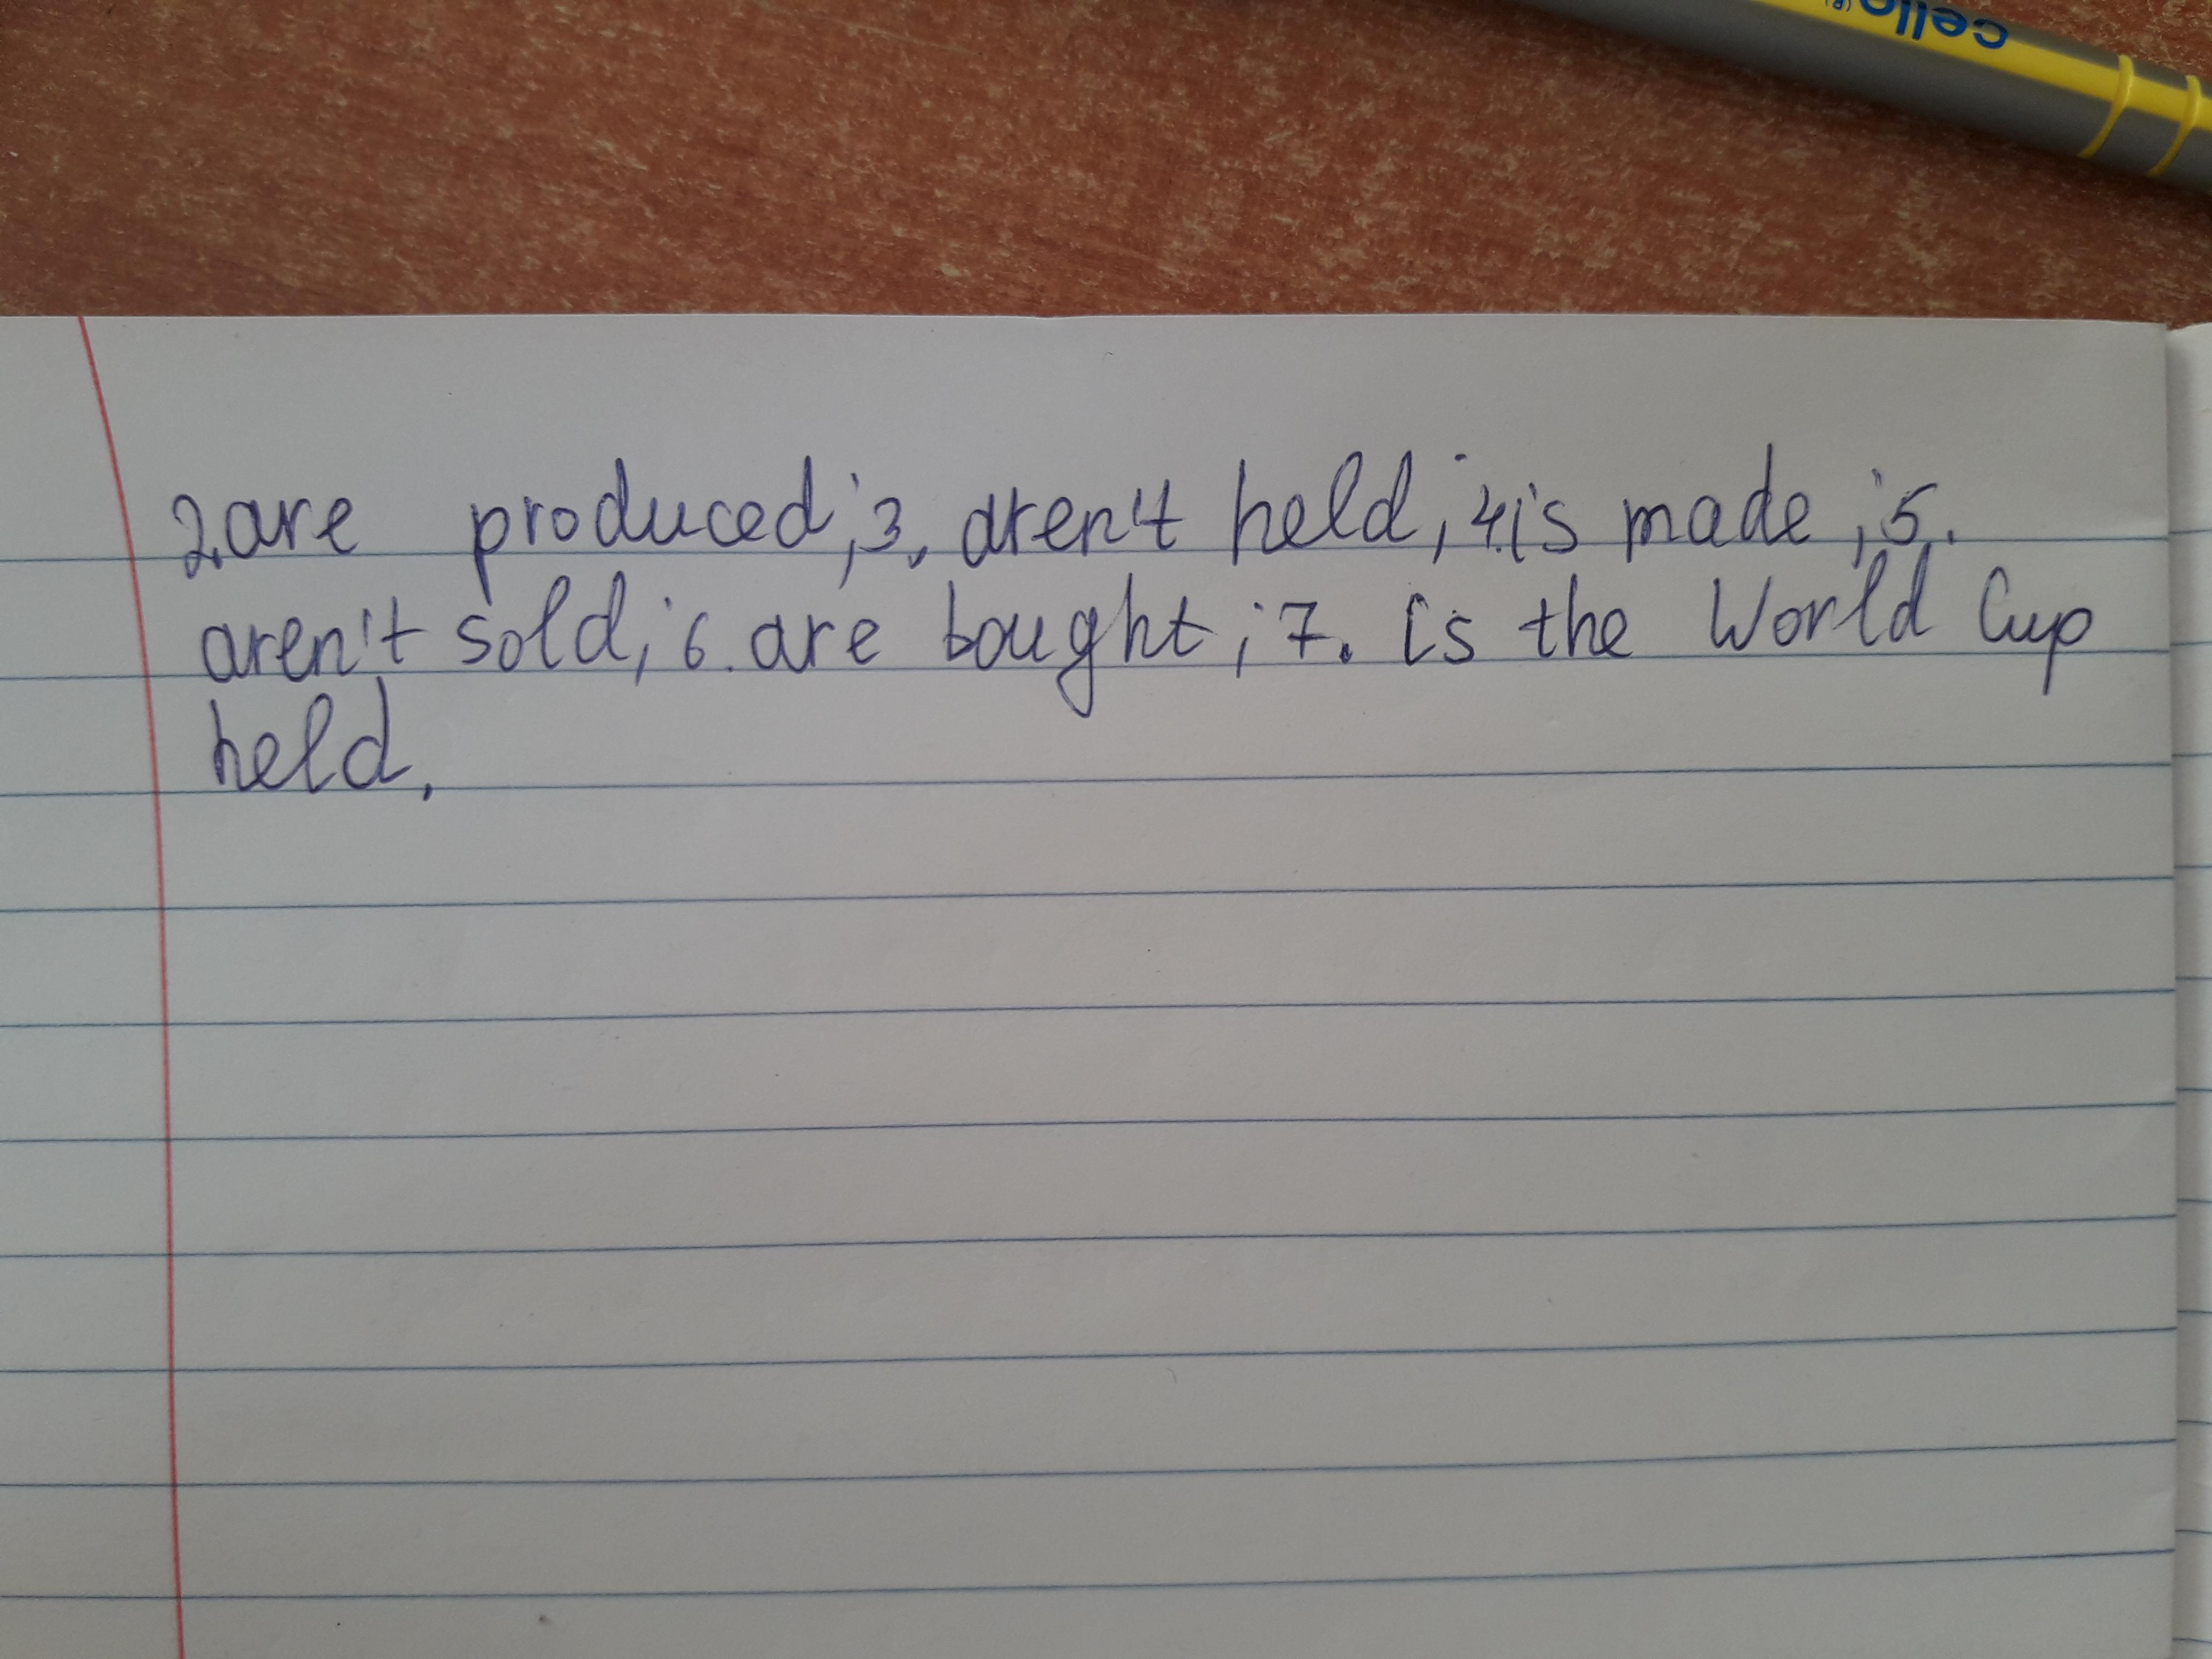 cello (R)
2.are produced; 3. aren't held; 4.is made; 5.
aren't sold; 6. are bought; 7. is the World Cup
held.